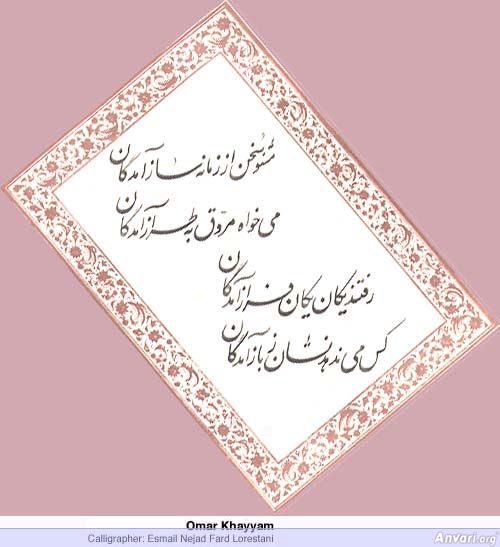 مشنو سخن از زمانه ساز آمدگان
می خواه مروّق به طراز آمدگان
رفتند یکان یکان فراز آمدگان
کس می ندهد نشان ز باز آمدگان
Omar Khayyam
Calligrapher: Esmail Nejad Fard Lorestani
Anvari.org